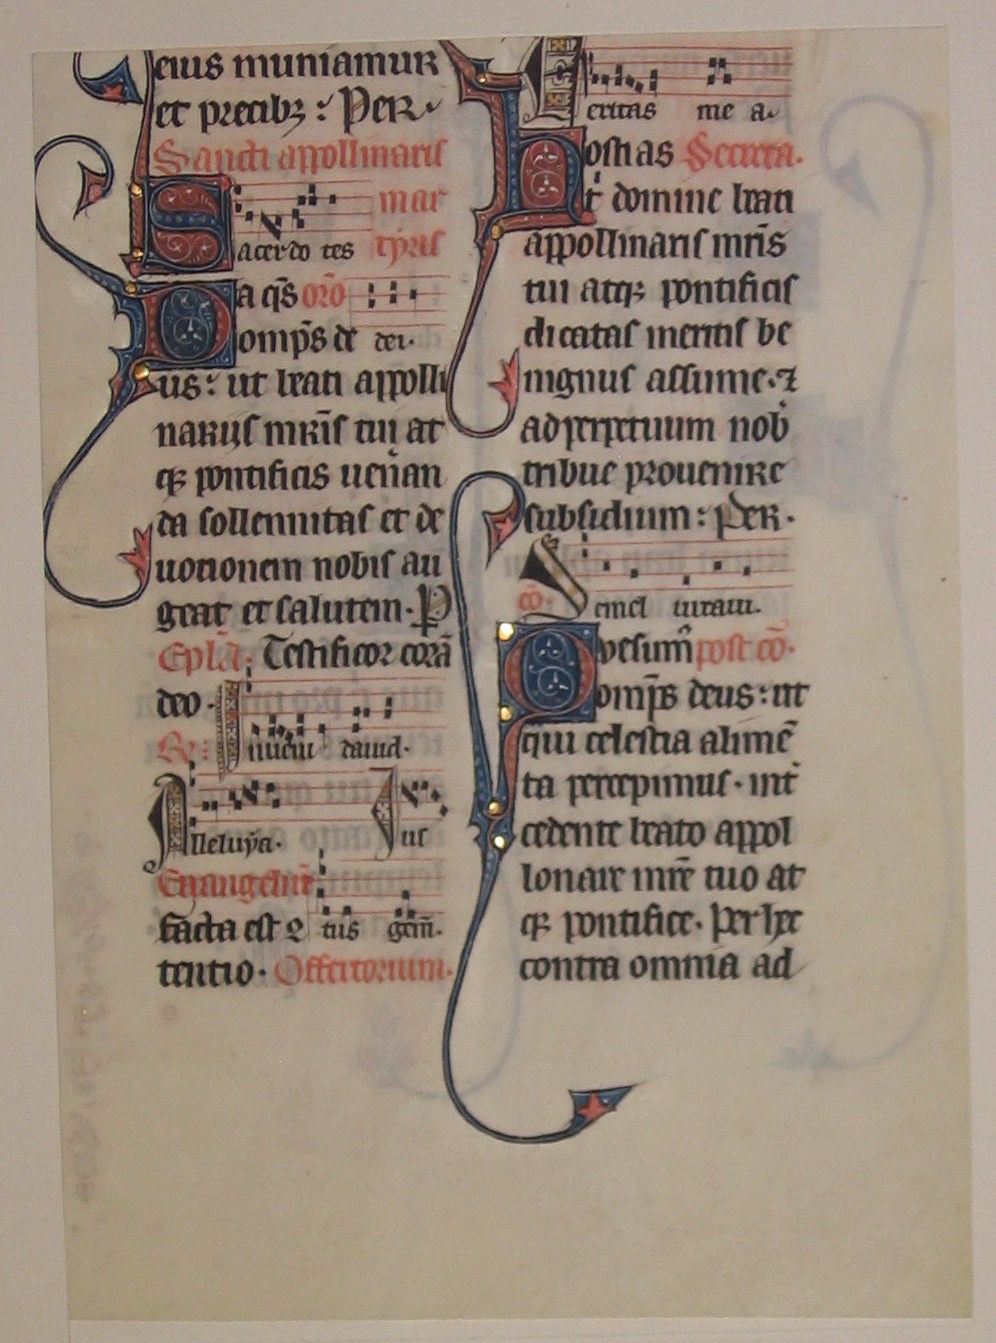 eius muniamur
et precibꝫ : Per
Sancti appollinaris
mar
Sacerdo tes tyris
Da q̄s oro
omp̄s de dei.
us : ut beati appolli
naris mr̄is tui at
qꝫ pontificis ueneran
da sollennitas et de
uotionem nobis au
geat et salutem. P
Epl̄a. Testificor corā
deo.
R̄. Inueni dauid.
Alleluya. Ius
Euangeliū
facta est 9 tus gem̄.
tentio. Offertorium.
Ueritas me a.
Hostias Secreta.
t domine beati
appollinaris mr̄is
tui atqꝫ pontificis
dicatas meritis be
nignus assume. ⁊
ad perpetuum nob
tribue prouenire
subsidium : Per.
cō. Semel iuraui.
Quesum⁹ post cō.
omp̄s deus : ut
qui celestia alimē
ta percepimus. int̄
cedente beato appol
lonare mr̄e tuo at
qꝫ pontifice. Per hec
contra omnia ad